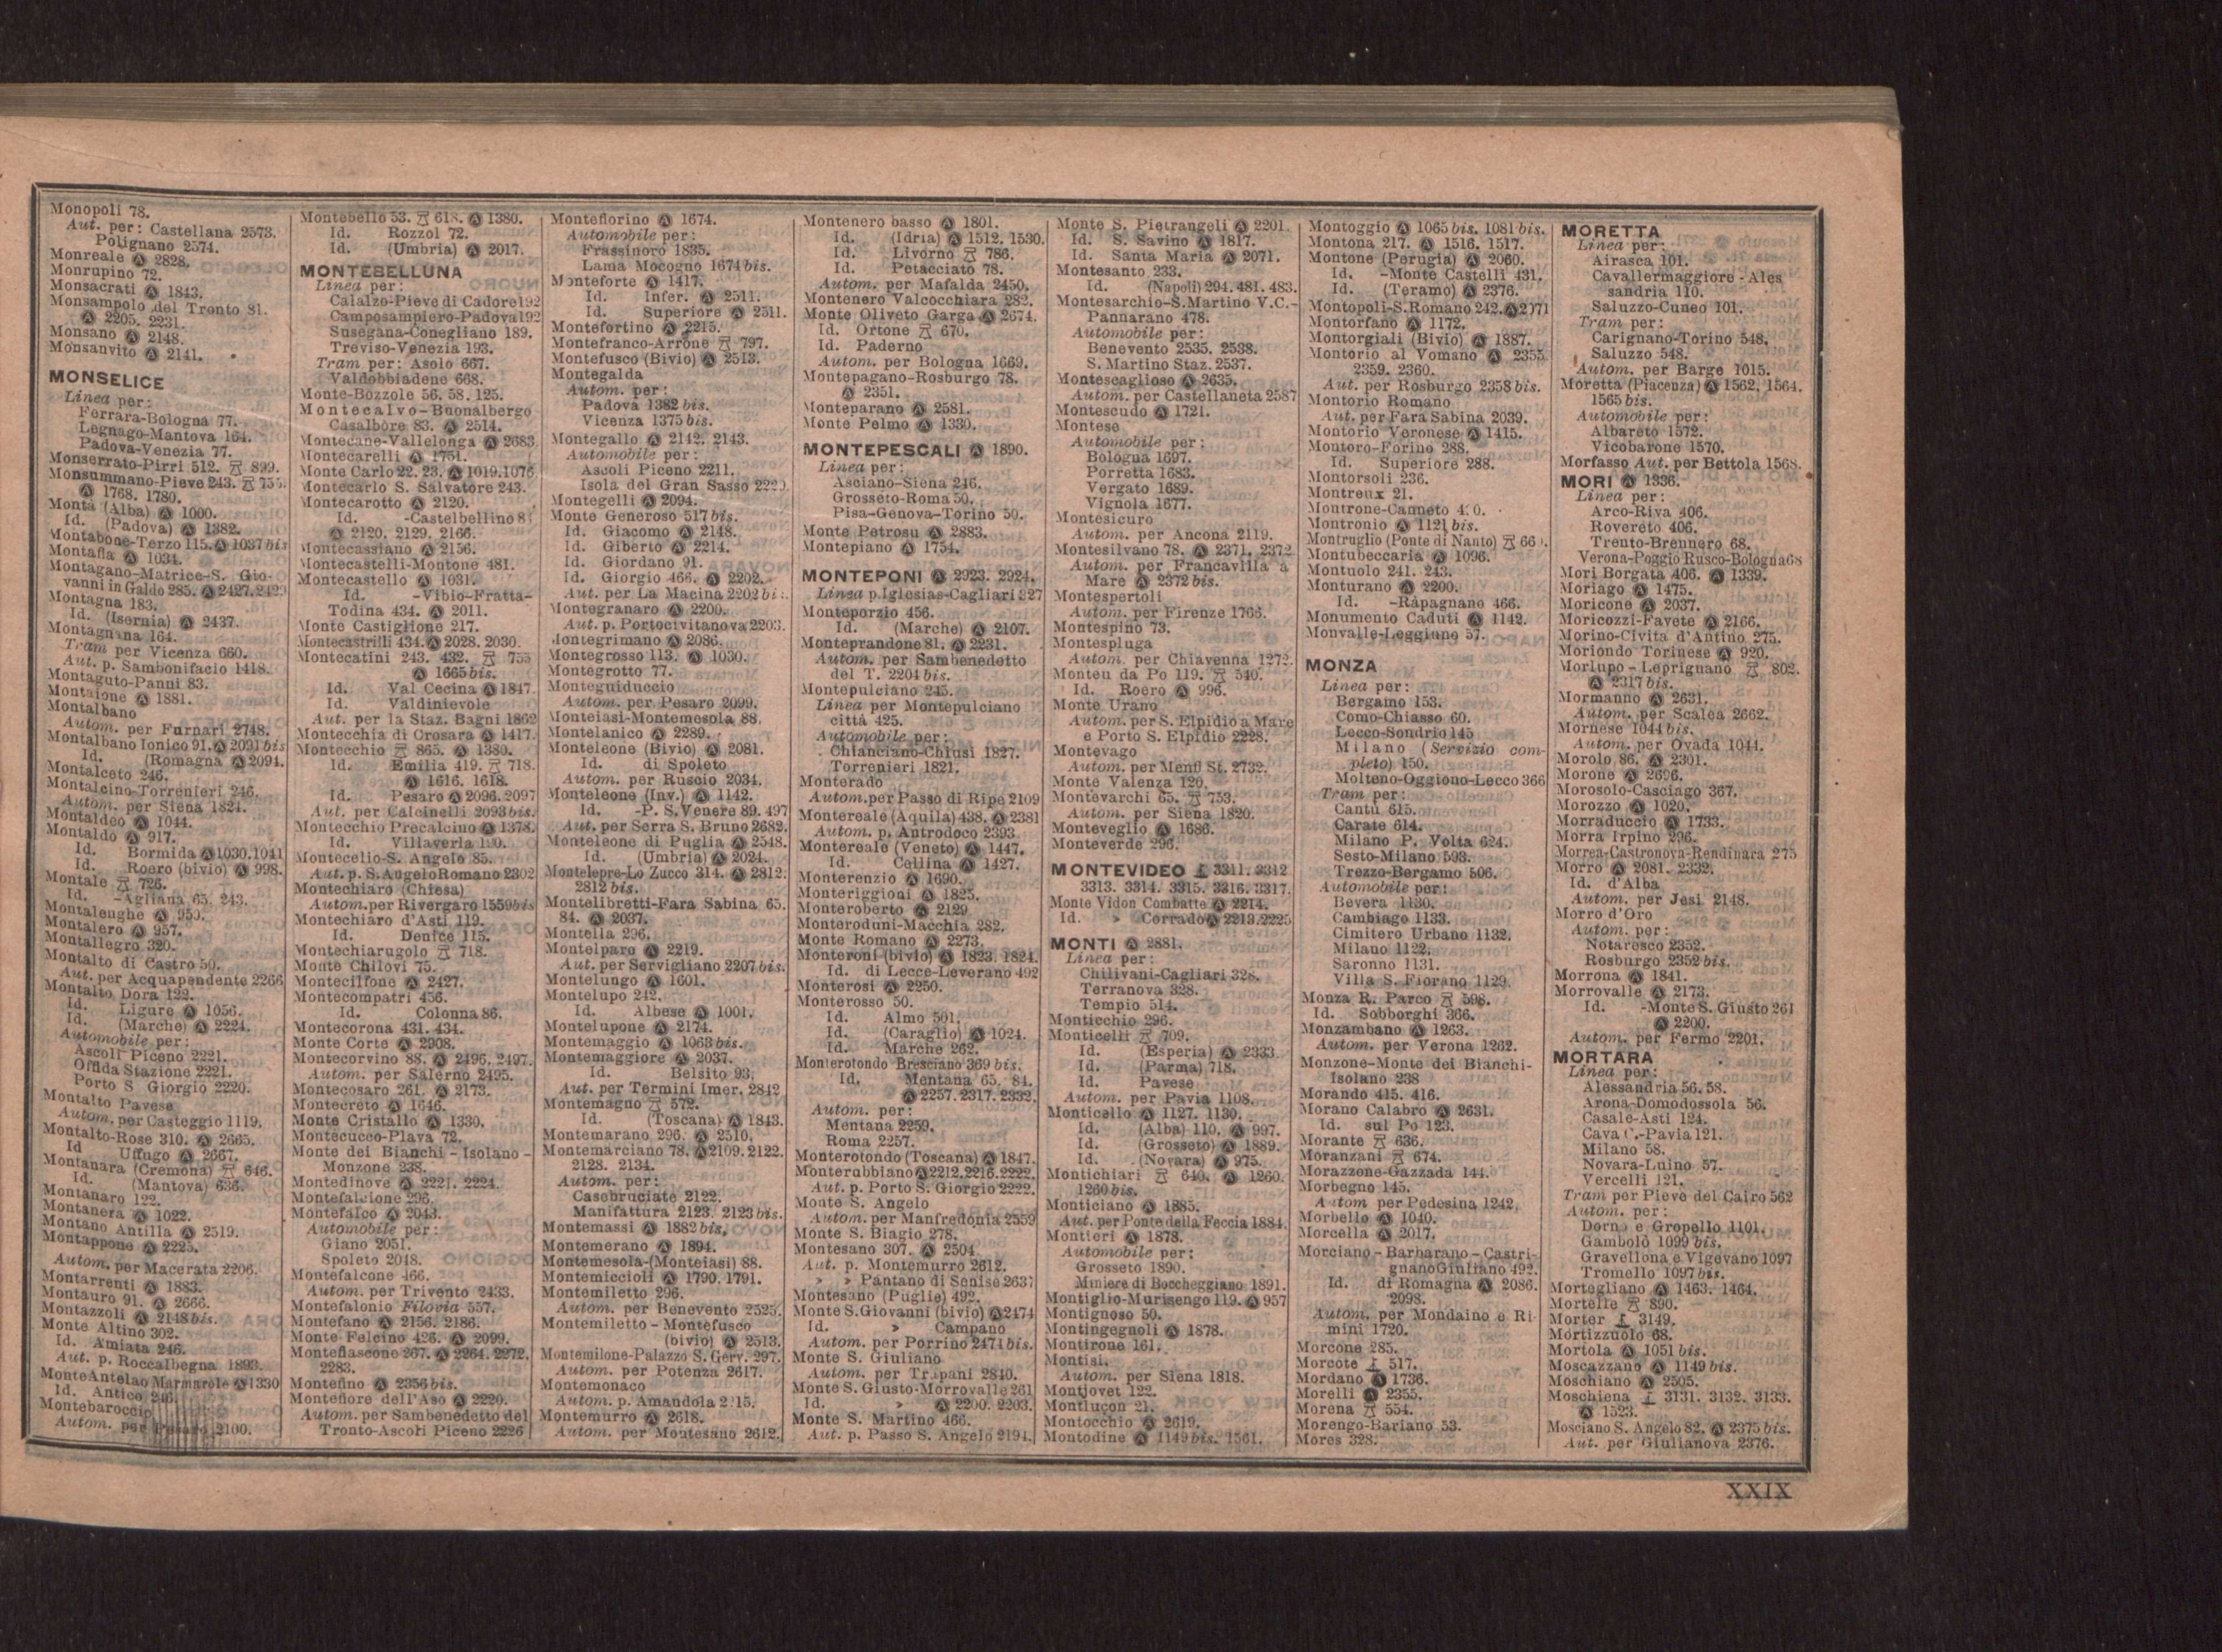 Monopoli 78.
Aut. per: Castellana 2573.
Polignano 2574.
Monreale Ⓐ 2828.
Monrupino 72.
Monsacrati Ⓐ 1843.
Monsampolo del Tronto 81.
Ⓐ 2205. 2231.
Monsano Ⓐ 2148.
Monsanvito Ⓐ 2141.
MONSELICE
Linea per:
Ferrara-Bologna 77.
Legnago-Mantova 164.
Padova-Venezia 77.
Monserrato-Pirri 512. 899.
Monsummano-Pieve 243.
Ⓐ 1768. 1780.
Montà (Alba) Ⓐ 1000.
Id. (Padova) Ⓐ 1382.
Montabone-Terzo 115. Ⓐ 1037 bis
Montafia Ⓐ 1034.
Montagano-Matrice-S. Gio-
vanni in Galdo 285. Ⓐ 2427.
Montagna 183.
Id. (Isernia) Ⓐ 2437.
Montagnana 164.
Tram per Vicenza 660.
Aut. p. Sambonifacio 1418.
Montaguto-Panni 83.
Montaione Ⓐ 1881.
Montalbano
Autom. per Furnari 2748.
Montalbano Ionico 91. Ⓐ 2091 bis
Id. (Romagna Ⓐ 2094.
Montalceto 246.
Montalcino-Torrenieri 246.
Autom. per Siena 1824.
Montaldeo Ⓐ 1044.
Montaldo Ⓐ 917.
Id. Bormida Ⓐ 1030.1041
Id. Roero (bivio) Ⓐ 998.
Montale 726.
Id. -Agliana 65. 243.
Montalenghe Ⓐ 950.
Montalero Ⓐ 957.
Montallegro 320.
Montalto di Castro 50.
Aut. per Acquapendente 2266
Montalto Dora 122.
Id. Ligure Ⓐ 1056.
Id. (Marche) Ⓐ 2224.
Automobile per:
Ascoli Piceno 2221.
Offida Stazione 2221.
Porto S Giorgio 2220.
Montalto Pavese
Autom. per Casteggio 1119.
Montalto-Rose 310. Ⓐ 2665.
Id Uffugo Ⓐ 2667.
Montanara (Cremona) 646.
Id. (Mantova) 636.
Montanaro 122.
Montanera Ⓐ 1022.
Montano Antilla Ⓐ 2519.
Montappone Ⓐ 2225.
Autom. per Macerata 2206.
Montarrenti Ⓐ 1883.
Montauro 91. Ⓐ 2666.
Montazzoli Ⓐ 2148 bis.
Monte Altino 302.
Id. Amiata 246.
Aut. p. Roccalbegna 1893.
Monte Antelao Marmarole Ⓐ 1330
Id. Antico 246.
Montebaroccio
Autom. per Pesaro 2100.
Montebello 53. 618. Ⓐ 1380.
Id. Rozzol 72.
Id. (Umbria) Ⓐ 2017.
MONTEBELLUNA
Linea per:
Calalzo-Pieve di Cadore 192
Camposampiero-Padova 192
Susegana-Conegliano 189.
Treviso-Venezia 193.
Tram per: Asolo 667.
Valdobbiadene 668.
Monte-Bozzole 56. 58. 125.
Montecalvo-Buonalbergo
Casalbore 83. Ⓐ 2514.
Montecane-Vallelonga Ⓐ 2683
Montecarelli Ⓐ 1751.
Monte Carlo 22. 23. Ⓐ 1019.1076
Montecarlo S. Salvatore 243.
Montecarotto Ⓐ 2120.
Id. -Castelbellino
Ⓐ 2120. 2129. 2166.
Montecassiano Ⓐ 2156.
Montecastelli-Montone 481.
Montecastello Ⓐ 1031.
Id. -Vibio-Fratta-
Todina 434. Ⓐ 2011.
Monte Castiglione 217.
Montecastrilli 434. Ⓐ 2028. 2030.
Montecatini 243. 432. 755
Ⓐ 1665 bis.
Id. Val Cecina Ⓐ 1847.
Id. Valdinievole
Aut. per la Staz. Bagni 1862
Montecchia di Crosara Ⓐ 1417.
Montecchio 865. Ⓐ 1380.
Id. Emilia 419. 718.
Ⓐ 1616. 1618.
Id. Pesaro Ⓐ 2096. 2097
Aut. per Calcinelli 2093 bis.
Montecchio Precalcino Ⓐ 1378.
Id. Villaverla
Montecelio-S. Angelo 85.
Aut. p. S. Angelo Romano 2302
Montechiaro (Chiesa)
Autom. per Rivergaro 1559 bis
Montechiaro d'Asti 119.
Id. Denice 115.
Montechiarugolo 718.
Monte Chilovi 75.
Montecilfone Ⓐ 2427.
Montecompatri 456.
Id. Colonna 86.
Montecorona 431. 434.
Monte Corte Ⓐ 2908.
Montecorvino 88. Ⓐ 2496. 2497.
Autom. per Salerno 2495.
Montecosaro 261. Ⓐ 2173.
Montecreto Ⓐ 1646.
Monte Cristallo Ⓐ 1330.
Montecucco-Plava 72.
Monte dei Bianchi-Isolano-
Monzone 238.
Montedinove Ⓐ 2221. 2224.
Montefalcione 296.
Montefalco Ⓐ 2043.
Automobile per:
Giano 2051.
Spoleto 2048.
Montefalcone 466.
Autom. per Trivento 2433.
Montefalonio Filovia 557.
Montefano Ⓐ 2156. 2186.
Monte Felcino 426. Ⓐ 2099.
Montefiascone 267. Ⓐ 2264. 2272.
2283.
Montefino Ⓐ 2356 bis.
Montefiore dell'Aso Ⓐ 2220.
Autom. per Sambenedetto del
Tronto-Ascoli Piceno 2226
Montefiorino Ⓐ 1674.
Automobile per:
Frassinoro 1835.
Lama Mocogno 1674 bis.
Monteforte Ⓐ 1417.
Id. Infer. Ⓐ 2511.
Id. Superiore Ⓐ 2511.
Montefortino Ⓐ 2215.
Montefranco-Arrone 797.
Montefusco (Bivio) Ⓐ 2513.
Montegalda
Autom. per:
Padova 1382 bis.
Vicenza 1375 bis.
Montegallo Ⓐ 2142. 2143.
Automobile per:
Ascoli Piceno 2211.
Isola del Gran Sasso
Montegelli Ⓐ 2094.
Monte Generoso 517 bis.
Id. Giacomo Ⓐ 2148.
Id. Giberto Ⓐ 2214.
Id. Giordano 91.
Id. Giorgio 466. Ⓐ 2202.
Aut. per La Macina 2202
Montegranaro Ⓐ 2200.
Aut. p. Portocivitanova 2203.
Montegrimano Ⓐ 2086.
Montegrosso 113. Ⓐ 1030.
Montegrotto 77.
Monteguiduccio
Autom. per Pesaro 2099.
Monteiasi-Montemesola 88.
Montelanico Ⓐ 2289.
Monteleone (Bivio) Ⓐ 2081.
Id. di Spoleto
Autom. per Ruscio 2034.
Monteleone (Inv.) Ⓐ 1142.
Id. -P. S. Venere 89. 497
Aut. per Serra S. Bruno 2682.
Monteleone di Puglia Ⓐ 2548.
Id. (Umbria) Ⓐ 2024.
Montelepre-Lo Zucco 314. Ⓐ 2812.
2812 bis.
Montelibretti-Fara Sabina 65.
84. Ⓐ 2037.
Montella 296.
Montelparo Ⓐ 2219.
Aut. per Servigliano 2207 bis.
Montelungo Ⓐ 1601.
Montelupo 242.
Id. Albese Ⓐ 1001.
Montelupone Ⓐ 2174.
Montemaggio Ⓐ 1063 bis.
Montemaggiore Ⓐ 2037.
Id. Belsito 93.
Aut. per Termini Imer. 2842
Montemagno 572.
Id. (Toscana) Ⓐ 1843.
Montemarano 296. Ⓐ 2510.
Montemarciano 78. Ⓐ 2109. 2122.
2128. 2134.
Autom. per:
Casebruciate 2122.
Manifattura 2123. 2123 bis.
Montemassi Ⓐ 1882 bis.
Montemerano Ⓐ 1894.
Montemesola-(Monteiasi) 88.
Montemiccioli Ⓐ 1790. 1791.
Montemiletto 296.
Autom. per Benevento 2525.
Montemiletto-Montefusco
(bivio) Ⓐ 2513.
Montemilone-Palazzo S. Gerv. 297.
Autom. per Potenza 2617.
Montemonaco
Autom. p. Amandola
Montemurro Ⓐ 2618.
Autom. per Montesano 2612.
Montenero basso Ⓐ 1801.
Id. (Idria) Ⓐ 1512. 1530.
Id. Livorno 786.
Id. Petacciato 78.
Autom. per Mafalda 2450.
Montenero Valcocchiara 282.
Monte Oliveto Garga Ⓐ 2674.
Id. Ortone 670.
Id. Paderno
Autom. per Bologna 1669.
Montepagano-Rosburgo 78.
Ⓐ 2351.
Monteparano Ⓐ 2581.
Monte Pelmo Ⓐ 1330.
MONTEPESCALI Ⓐ 1890.
Linea per:
Asciano-Siena 246.
Grosseto-Roma 50.
Pisa-Genova-Torino 50.
Monte Petrosu Ⓐ 2883.
Montepiano Ⓐ 1754.
MONTEPONI Ⓐ 2923. 2924.
Linea p. Iglesias-Cagliari 327
Monteporzio 456.
Id. (Marche) Ⓐ 2107.
Monteprandone 81. Ⓐ 2231.
Autom. per Sambenedetto
del T. 2204 bis.
Montepulciano 245.
Linea per Montepulciano
città 425.
Automobile per:
Chianciano-Chiusi 1827.
Torrenieri 1821.
Monterado
Autom. per Passo di Ripe 2109
Montereale (Aquila) 438. Ⓐ 2381
Autom. p. Antrodoco 2393
Montereale (Veneto) Ⓐ 1447.
Id. Cellina Ⓐ 1427.
Monterenzio Ⓐ 1690.
Monteriggioni Ⓐ 1825.
Monteroberto Ⓐ 2129
Monteroduni-Macchia 282.
Monte Romano Ⓐ 2273.
Monteroni (bivio) Ⓐ 1823. 1824.
Id. di Lecce-Leverano 492
Monterosi Ⓐ 2250.
Monterosso 50.
Id. Almo 501.
Id. (Caraglio) Ⓐ 1024.
Id. Marche 262.
Monterotondo Bresciano 369 bis.
Id. Mentana 65. 84.
Ⓐ 2257. 2317. 2332.
Autom. per:
Mentana 2259.
Roma 2257.
Monterotondo (Toscana) Ⓐ 1847.
Monterubbiano Ⓐ 2212.2216.2222.
Aut. p. Porto S. Giorgio 2222.
Monte S. Angelo
Autom. per Manfredonia 2559
Monte S. Biagio 278.
Montesano 307. Ⓐ 2504
Aut. p. Montemurro 2612.
» » Pantano di Senise 2637
Montesano (Puglie) 492.
Monte S. Giovanni (bivio) Ⓐ 2474
Id. » Campano
Autom. per Porrino 2471 bis.
Monte S. Giuliano
Autom. per Trapani 2840.
Monte S. Giusto-Morrovalle 261
Id. » Ⓐ 2200. 2203.
Monte S. Martino 466.
Aut. p. Passo S. Angelo 2194.
Monte S. Pietrangeli Ⓐ 2201.
Id. S. Savino Ⓐ 1817.
Id. Santa Maria Ⓐ 2071.
Montesanto 233.
Id. (Napoli) 294. 481. 483.
Montesarchio-S. Martino V.C.-
Pannarano 478.
Automobile per:
Benevento 2535. 2538.
S. Martino Staz. 2537.
Montescaglioso Ⓐ 2635.
Autom. per Castellaneta 2587
Montescudo Ⓐ 1721.
Montese
Automobile per:
Bologna 1697.
Porretta 1683.
Vergato 1689.
Vignola 1677.
Montesicuro
Autom. per Ancona 2119.
Montesilvano 78. Ⓐ 2371. 2372
Autom. per Francavilla a
Mare Ⓐ 2372 bis.
Montespertoli
Autom. per Firenze 1766.
Montespino 73.
Montespluga
Autom. per Chiavenna 1272.
Monteu da Po 119. 540.
Id. Roero Ⓐ 996.
Monte Urano
Autom. per S. Elpidio a Mare
e Porto S. Elpidio 2228.
Montevago
Autom. per Menfi St. 2732.
Monte Valenza 120.
Montevarchi 65. 753.
Autom. per Siena 1820.
Monteveglio Ⓐ 1686.
Monteverde 296.
MONTEVIDEO 3311. 3312
3313. 3314. 3315. 3316. 3317.
Monte Vidon Combatte Ⓐ 2214.
Id. » Corrado Ⓐ 2213.2225
MONTI Ⓐ 2881.
Linea per:
Chilivani-Cagliari 328.
Terranova 328.
Tempio 514.
Monticchio 296.
Monticelli 709.
Id. (Esperia) Ⓐ 2333.
Id. (Parma) 718.
Id. Pavese
Autom. per Pavia 1108.
Monticello Ⓐ 1127. 1130.
Id. (Alba) 110. Ⓐ 997.
Id. (Grosseto) Ⓐ 1889.
Id. (Novara) Ⓐ 975.
Montichiari 640. Ⓐ 1260.
1260 bis.
Monticiano Ⓐ 1885.
Aut. per Ponte della Feccia 1884.
Montieri Ⓐ 1878.
Automobile per:
Grosseto 1890.
Miniere di Boccheggiano 1891.
Montiglio-Murisengo 119. Ⓐ 957
Montignoso 50.
Montingegnoli Ⓐ 1878.
Montirone 161.
Montisi.
Autom. per Siena 1818.
Montjovet 122.
Montluçon 21.
Montocchio Ⓐ 2619.
Montodine Ⓐ 1149 bis. 1561.
Montoggio Ⓐ 1065 bis. 1081 bis.
Montona 217. Ⓐ 1516. 1517.
Montone (Perugia) Ⓐ 2060.
Id. -Monte Castelli 431.
Id. (Teramo) Ⓐ 2376.
Montopoli-S. Romano 242. Ⓐ 2071
Montorfano Ⓐ 1172.
Montorgiali (Bivio) Ⓐ 1887.
Montorio al Vomano Ⓐ 2355
2359. 2360.
Aut. per Rosburgo 2358 bis.
Montorio Romano
Aut. per Fara Sabina 2039.
Montorio Veronese Ⓐ 1415.
Montoro-Forino 288.
Id. Superiore 288.
Montorsoli 236.
Montreux 21.
Montrone-Canneto
Montronio Ⓐ 1121 bis.
Montruglio (Ponte di Nanto)
Montubeccaria Ⓐ 1096.
Montuolo 241. 243.
Monturano Ⓐ 2200.
Id. -Rapagnano 466.
Monumento Caduti Ⓐ 1142.
Monvalle-Leggiuno 57.
MONZA
Linea per:
Bergamo 153.
Como-Chiasso 60.
Lecco-Sondrio 145
Milano (Servizio com-
pleto) 150.
Molteno-Oggiono-Lecco 366
Tram per:
Cantù 615.
Carate 614.
Milano P. Volta 624.
Sesto-Milano 593.
Trezzo-Bergamo 506.
Automobile per:
Bevera 1130.
Cambiago 1133.
Cimitero Urbano 1132.
Milano 1122.
Saronno 1131.
Villa S. Fiorano 1129.
Monza R. Parco 598.
Id. Sobborghi 366.
Monzambano Ⓐ 1263.
Autom. per Verona 1262.
Monzone-Monte dei Bianchi-
Isolano 238
Morando 415. 416.
Morano Calabro Ⓐ 2631.
Id. sul Po 123.
Morante 636.
Moranzani 674.
Morazzone-Gazzada 144.
Morbegno 145.
Autom per Pedesina 1242.
Morbello Ⓐ 1040.
Morcella Ⓐ 2017.
Morciano-Barbarano-Castri-
gnano Giuliano 492.
Id. di Romagna Ⓐ 2086.
2098.
Autom. per Mondaino e Ri-
mini 1720.
Morcone 285.
Morcote 517.
Mordano Ⓐ 1736.
Morelli Ⓐ 2355.
Morena 554.
Morengo-Bariano 53.
Mores 328.
MORETTA
Linea per:
Airasca 101.
Cavallermaggiore-Ales
sandria 110.
Saluzzo-Cuneo 101.
Tram per:
Carignano-Torino 548.
Saluzzo 548.
Autom. per Barge 1015.
Moretta (Piacenza) Ⓐ 1562. 1564.
1565 bis.
Automobile per:
Albareto 1572.
Vicobarone 1570.
Morfasso Aut. per Bettola 1568.
MORI Ⓐ 1336.
Linea per:
Arco-Riva 406.
Rovereto 406.
Trento-Brennero 68.
Verona-Poggio Rusco-Bologna 68
Mori Borgata 406. Ⓐ 1339.
Moriago Ⓐ 1475.
Moricone Ⓐ 2037.
Moricozzi-Favete Ⓐ 2166.
Morino-Civita d'Antino 275.
Moriondo Torinese Ⓐ 920.
Morlupo-Leprignano 802.
Ⓐ 2317 bis.
Mormanno Ⓐ 2631.
Autom. per Scalea 2662.
Mornese 1044 bis.
Autom. per Ovada 1044.
Morolo 86. Ⓐ 2301.
Morone Ⓐ 2696.
Morosolo-Casciago 367.
Morozzo Ⓐ 1020.
Morraduccio Ⓐ 1733.
Morra Irpino 296.
Morrea-Castronova-Rendinara 275
Morro Ⓐ 2081. 2332.
Id. d'Alba
Autom. per Jesi 2148.
Morro d'Oro
Autom. per:
Notaresco 2352.
Rosburgo 2352 bis.
Morrona Ⓐ 1841.
Morrovalle Ⓐ 2173.
Id. -Monte S. Giusto 261
Ⓐ 2200.
Autom. per Fermo 2201.
MORTARA
Linea per:
Alessandria 56. 58.
Arona-Domodossola 56.
Casale-Asti 124.
Cava C.-Pavia 121.
Milano 58.
Novara-Luino 57.
Vercelli 121.
Tram per Pieve del Cairo 562
Autom. per:
Dorno e Gropello 1101.
Gambolò 1099 bis.
Gravellona e Vigevano 1097
Tromello 1097 bis.
Mortegliano Ⓐ 1463. 1464.
Mortelle 890.
Morter 3149.
Mortizzuolo 68.
Mortola Ⓐ 1051 bis.
Moscazzano Ⓐ 1149 bis.
Moschiano Ⓐ 2505.
Moschiena 3131. 3132. 3133.
Ⓐ 1523.
Mosciano S. Angelo 82. Ⓐ 2375 bis.
Aut. per Giulianova 2376.
XXIX